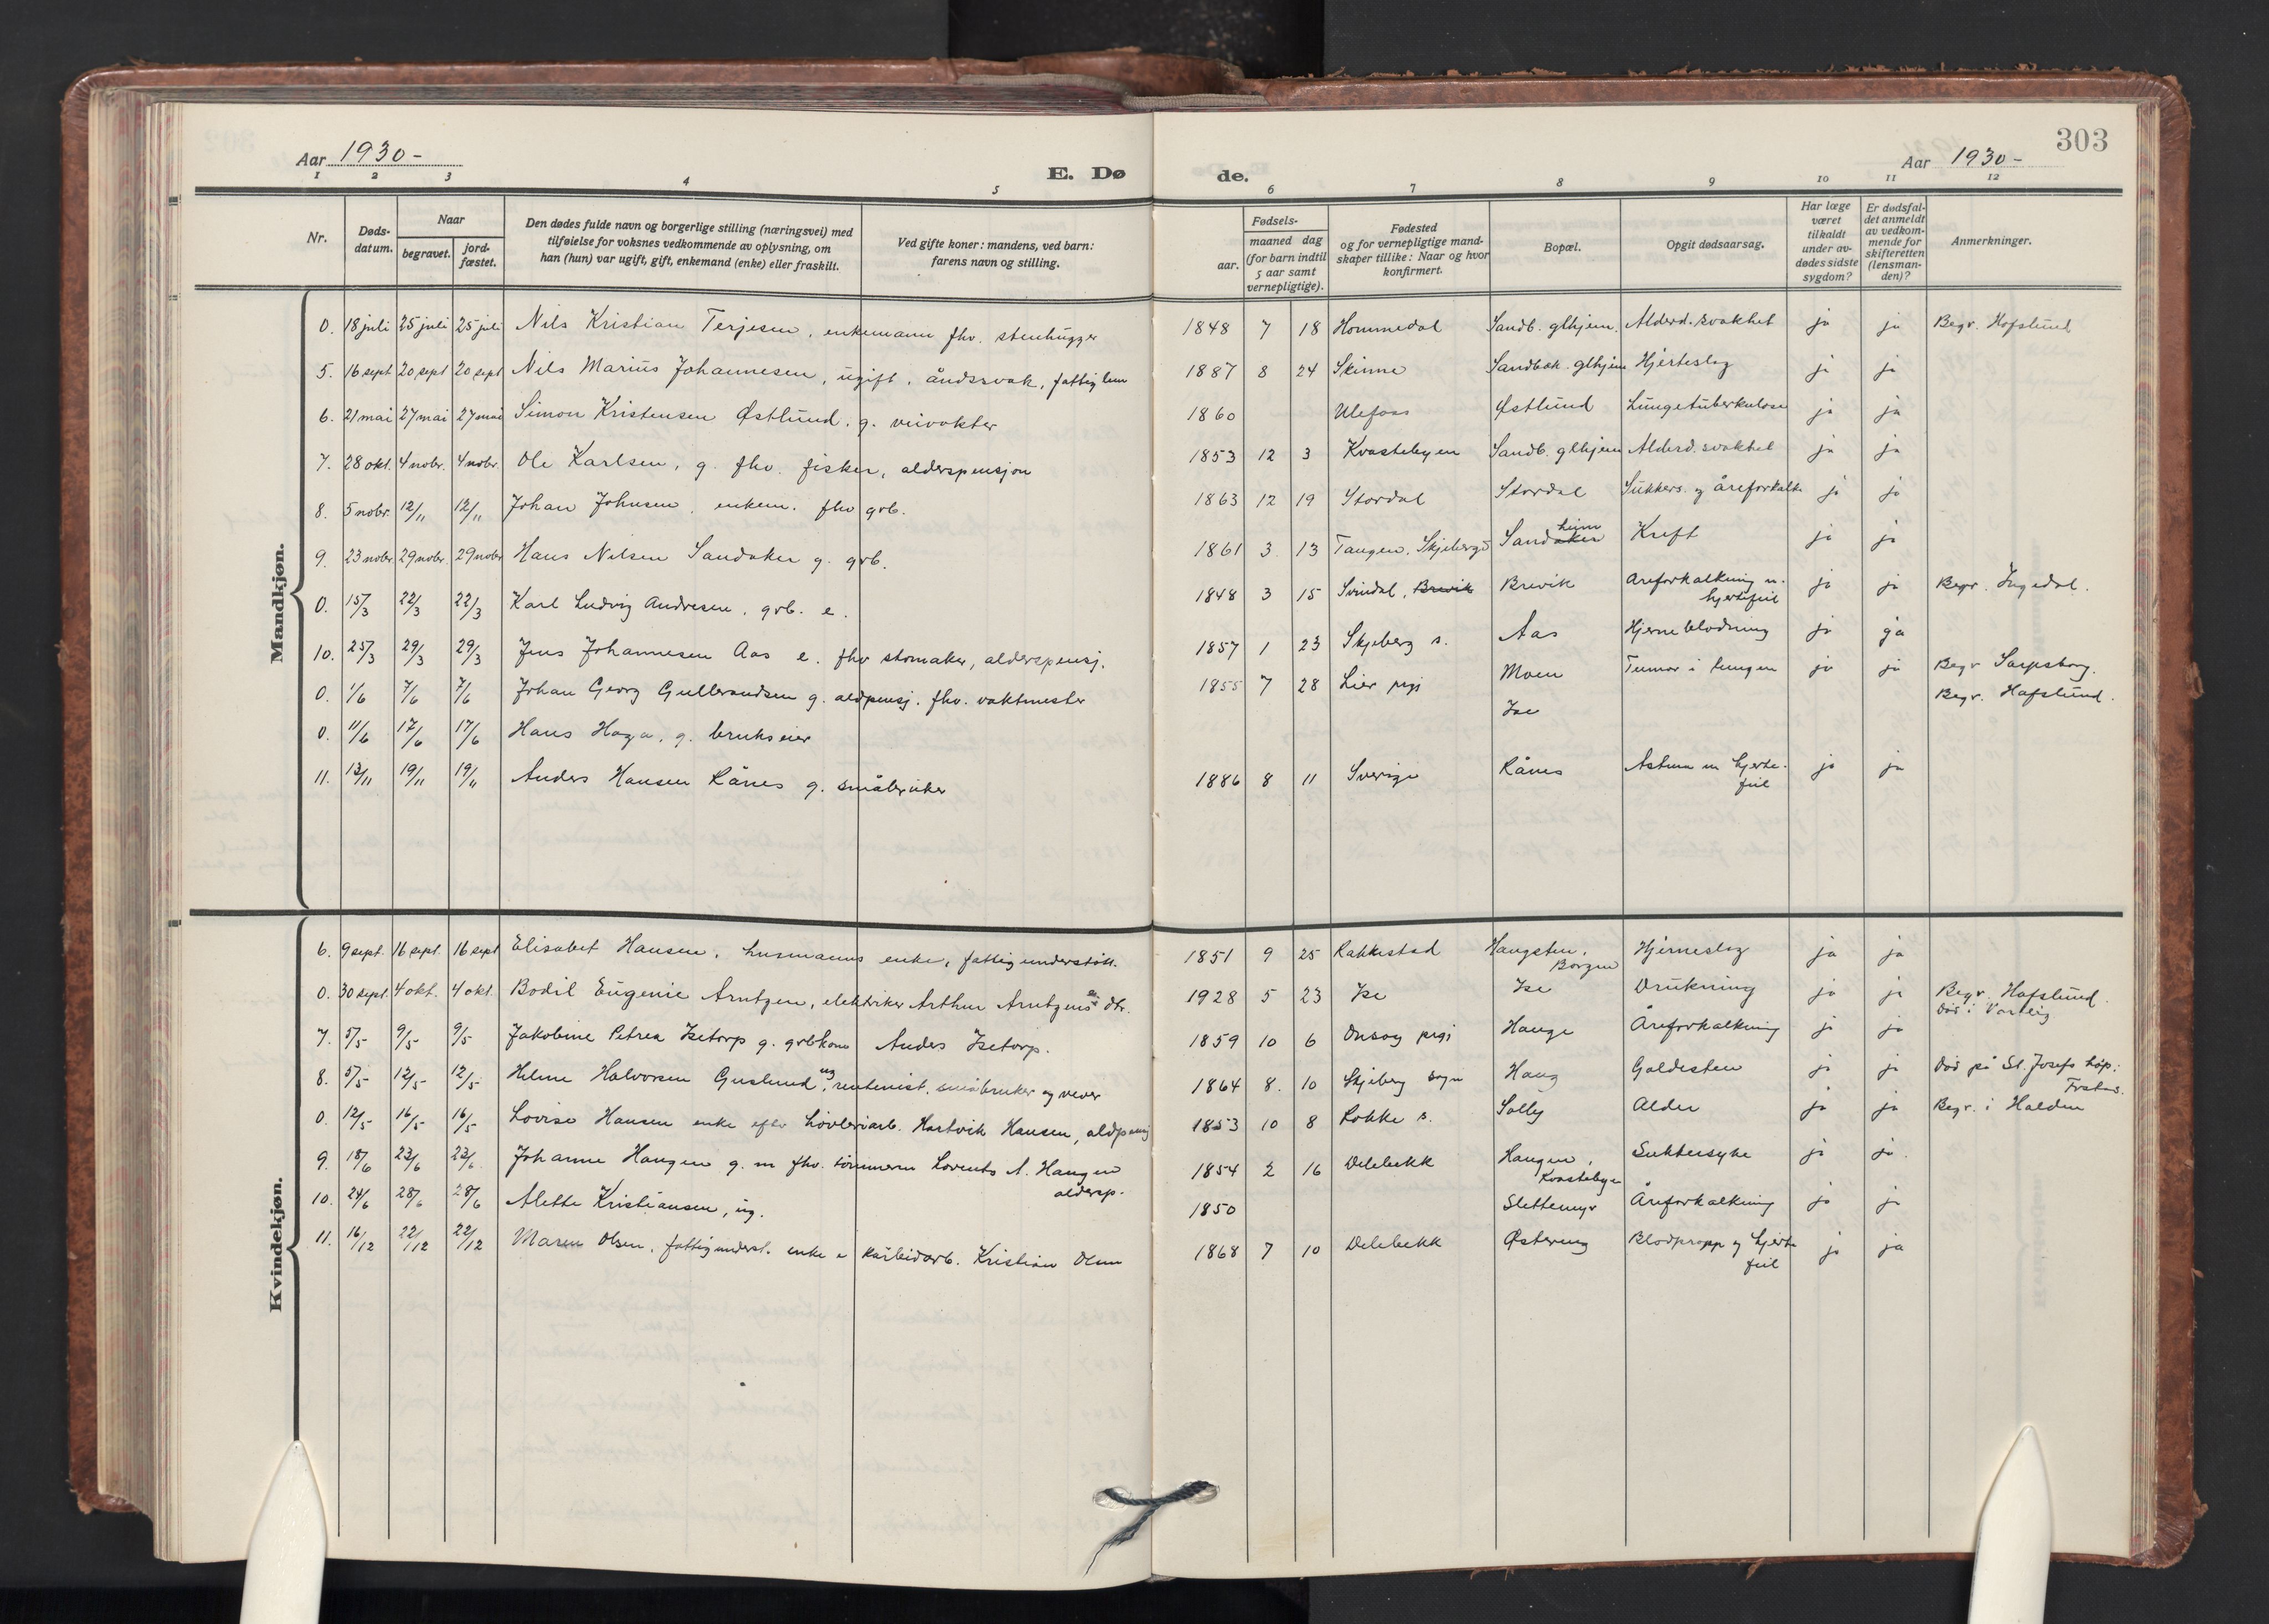 Aar 1930-
E. Dø
1 2 3 4 5
Nr.
Døds-
datum.
Naar
begravet.
jord-
fæstet.
Den dødes fulde navn og borgerlige stilling (næringsvei) med
tilføielse for voksnes vedkommende av oplysning, om
han (hun) var ugift, gift, enkemand (enke) eller fraskilt.
Ved gifte koner: mandens, ved barn:
farens navn og stilling.
Mandkjøn.
0. 18 juli 25 juli 25 juli Nils Kristian Terjesen, enkemann fhv. stenhugger
5. 16 sept 20 sept 20 sept Nils Marius Johannesen, ugift, åndssvak, fattiglem
6. 21 mai 27 mai 27 mai Simon Kristensen Østlund, g. veivokter
7. 28 okt. 4 nobr. 4 nobr. Ole Karlsen, g. fhv. fisker, alderspensjon
8. 5 nobr. 12/11 12/11 Johan Johnsen, enkem. fhv grb.
9. 23 nobr. 29 nobr. 29 nobr Hans Nilsen Sandaker g. grb.
0. 15/3 22/3 22/3 Karl Ludvig Andresen, grb. e.
10. 25/3 29/3 29/3 Jens Johannesen Aas e. fhv skomaker, alderspensj.
0. 1/6 7/6 7/6 Johan Georg Gulbrandsen g. aldpensj. fhv. vaktmester
0. 11/6 17/6 17/6 Hans Haga, g. brukseier
11. 13/11 19/11 19/11 Anders Hansen Rånes g. småbruker
Kvindekjøn.
6. 9 sept. 16 sept. 16 sept Elisabet Hansen, husmanns enke, fattigunderstøtt.
0. 30 sept. 4 okt. 4 okt. Bodil Eugenie Arntzen, elektriker Arthur Arntzens dtr.
7. 5/5 9/5 9/5 Jakobine Petrea Isetorp g. grbkone Anders Isetorp.
8. 5/5 12/5 12/5 Helene Halvorsen Guslund, ug rentenist, småbruker og vever
0. 12/5 16/5 16/5 Lovise Hansen enke efter høvleriarb. Hartvik Hansen, aldpensj
9. 18/6 23/6 23/6 Johanne Haugen g. m fhv. tømmerm Lorents A. Haugen
aldersp.
10. 24/6 28/6 28/6 Alette Kristiansen, ug.
11. 16/12 22/12 22/12 Maren Olsen, fattigunderst. enke e karbidarb. Kristian Olsen
303
Aar 1930-
de.
6 7 8 9 10 11 12
Fødsels-
aar.
maaned dag
(for barn indtil
5 aar samt
vernepligtige).
Fødested
og for vernepligtige mand-
skaper tillike: Naar og hvor
konfirmert.
Bopæl.
Opgit dødsaarsag.
Har læge
været
tilkaldt
under av-
dødes sidste
sygdom?
Er dødsfal-
det anmeldt
av vedkom-
mende for
skifteretten
(lensman-
den)?
Anmerkninger.
1848 7 18 Hommedal Sandb. glhjem. Alderd.svakhet ja ja Begr. Hafslund
1887 8 24 Skinne Sandbak. glhjem Hjerteslag ja ja
1860 Ulefoss Østlund Lungetuberkulose ja ja
1853 12 3 Kvastebyen Sandb. glhjem Alderd.svakhet ja ja
1863 12 19 Stordal Stordal Sukkers. og åreforkalkn ja ja
1861 3 13 Tangen, Skjeberg Sandaker heim Kreft ja ja
1848 3 15 Svindal, Brevik Brevik Areforkalkning m.
hjertefeil ja ja Begr. Ingedal.
1857 1 23 Skjeberg s. Aas Hjerneblødning ja ja
1855 7 28 Lier prgj Moen Tumor i lungen ja ja Begr Sarpsborg.
Ise Begr. Hafslund.
1886 8 11 Sverige Rånes Astma m hjerte-
feil ja ja
1851 9 25 Rakkestad Haugsten,
Borgen Hjerneslag ja ja
1928 5 23 Ise Ise Drukning ja ja Begr. Hafslund.
død i Varteig
1859 10 6 Onsøy prgj Hauge Åreforkalkning ja ja
1864 8. 10 Skjeberg sogn Haug Galdesten ja ja død på St. Josefs hosp.
Frstad.
1853 10 8 Rokke s. Solby Alder ja ja Begr. i Halden
1854 2 16 Delebekk Haugen,
Kvastebyen Sukkersyke ja ja.
1850 Slettemyr Åreforkalkning ja ja
1868 7 10 Delebekk Østereng Blodpropp og hjerte
feil ja ja